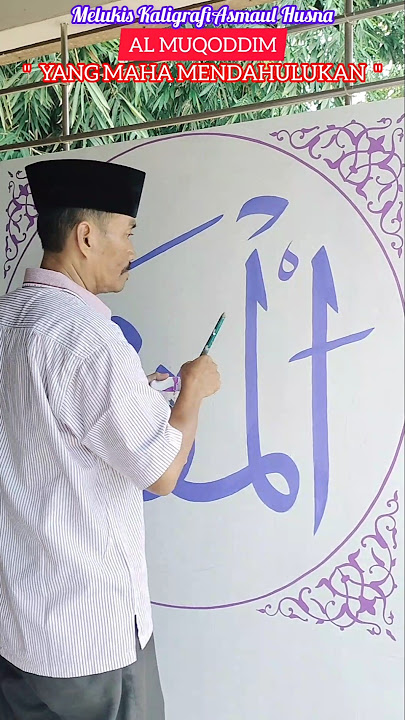 Melukis Kaligrafi Asmaul Husna
AL MUQODDIM
" YANG MAHA MENDAHULUKAN "